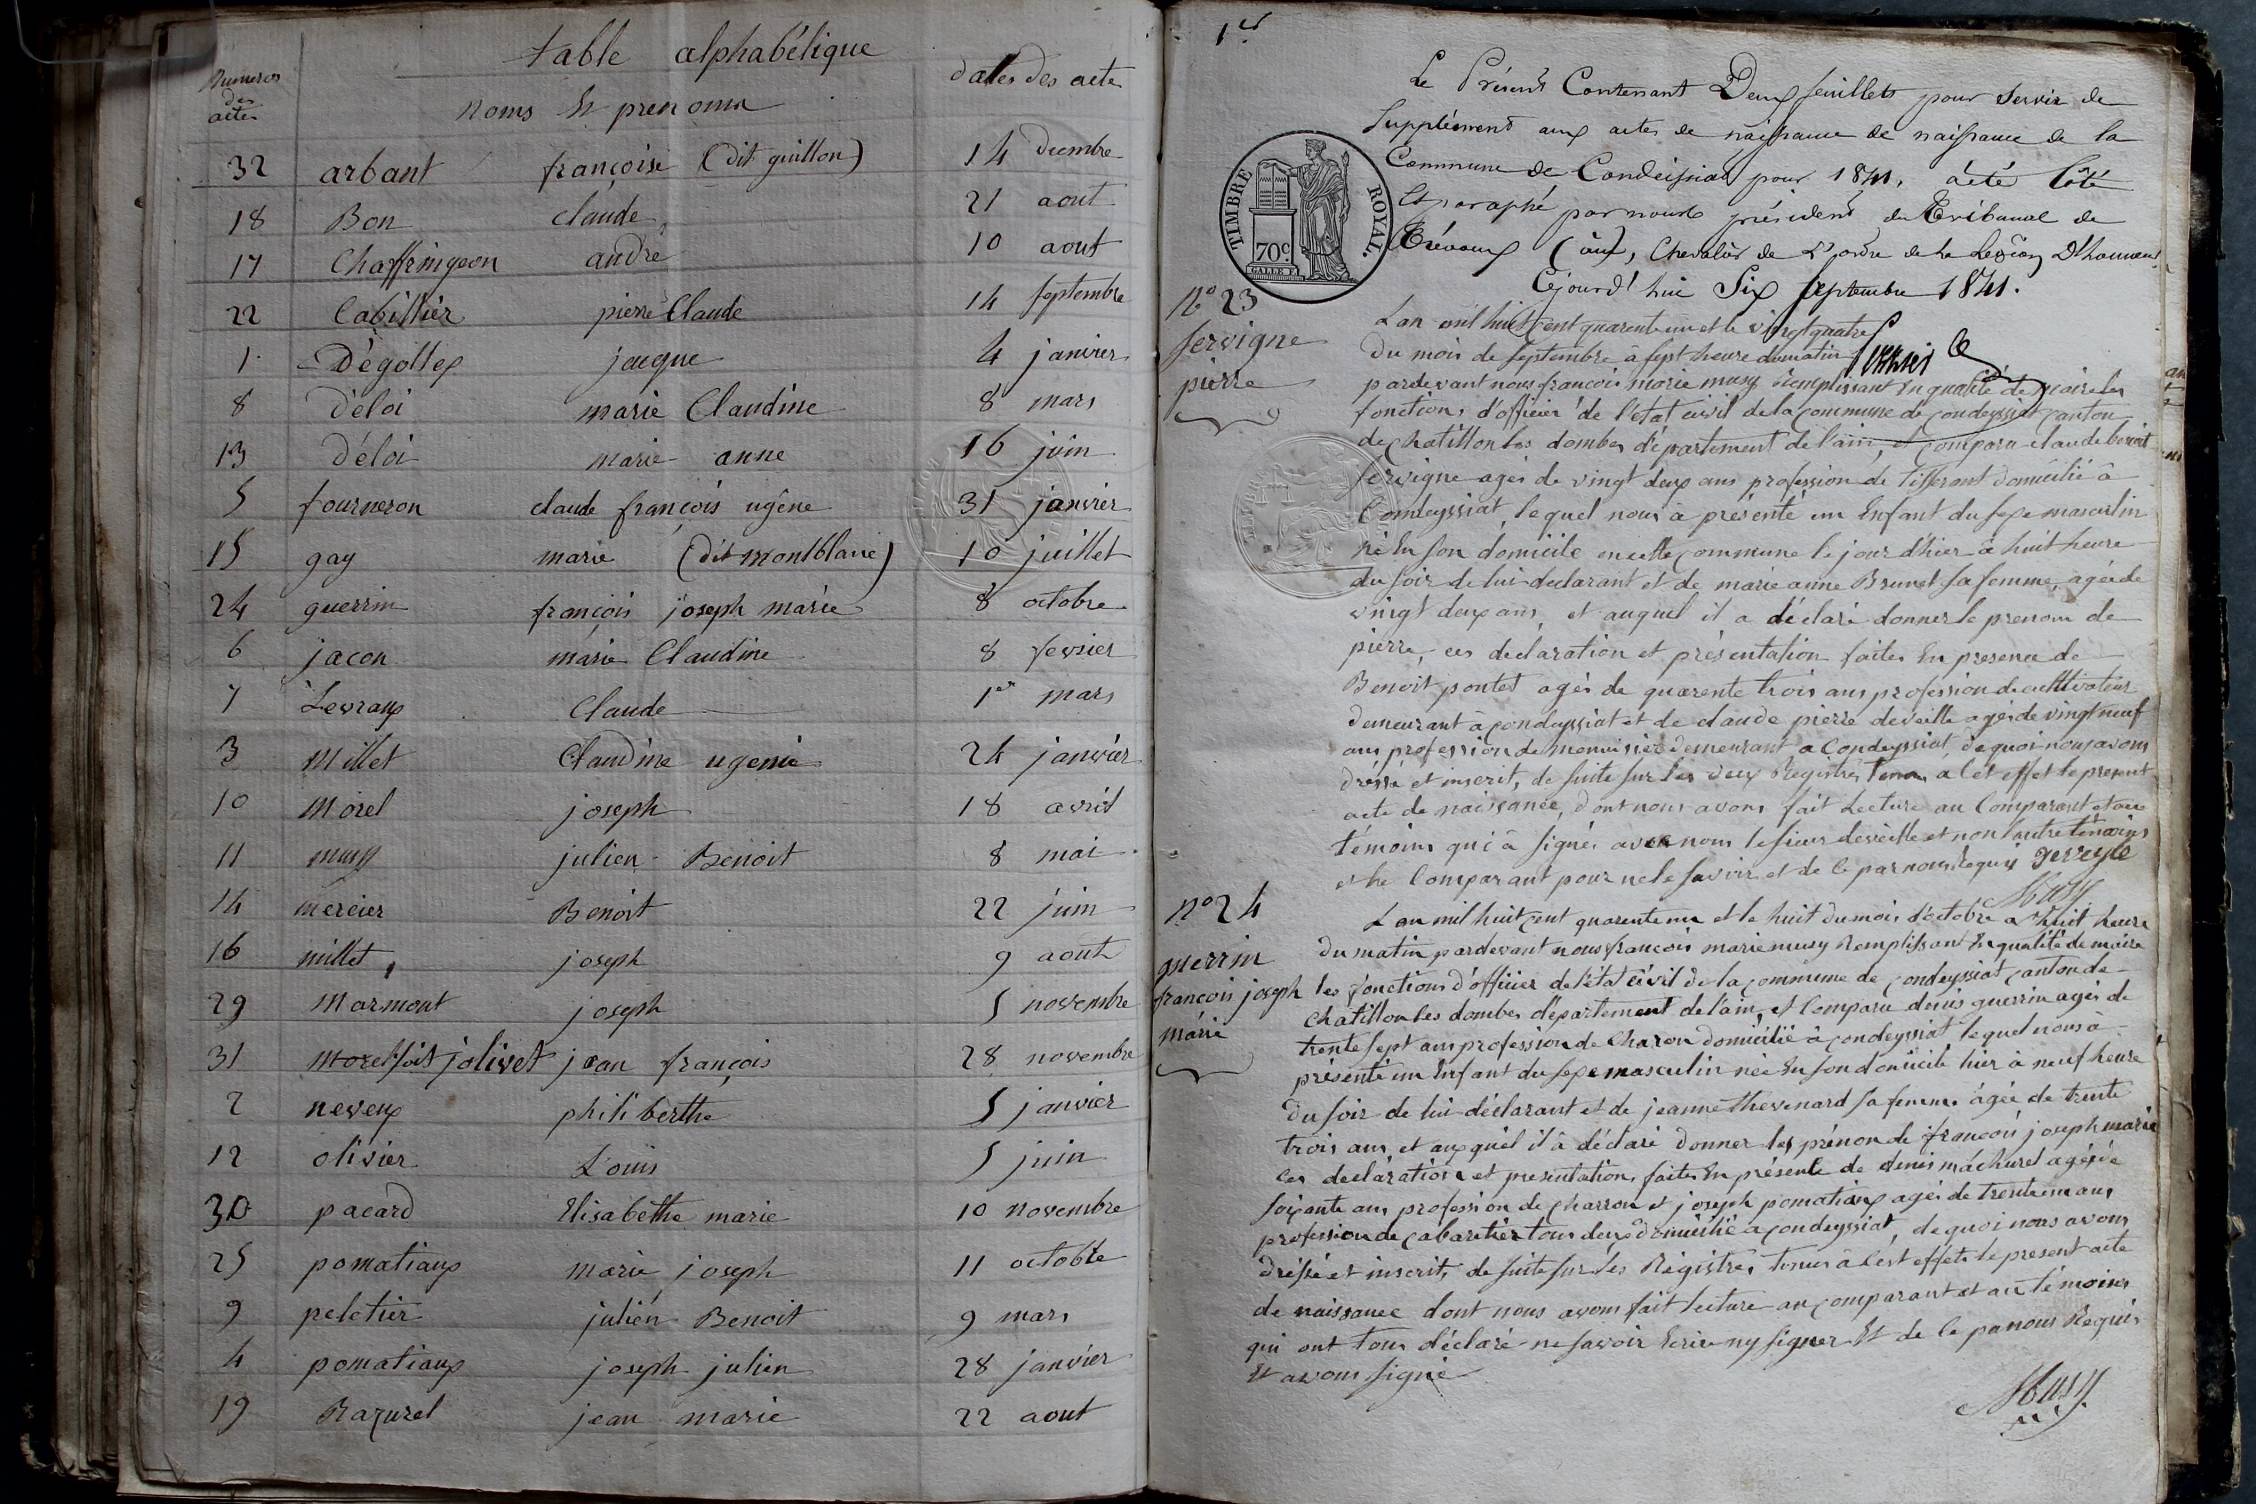 table alphabétique
Numeros
des
actes
noms Et prenoms
dates des acte
32 arbant françoise (dit guillon) 14 decembre
18 Bon claude 21 aout
17 Chaffringeon andré 10 aout
22 Cabillier pierre Claude 14 septembre
1 Dégottex jacque 4 janvier
8 Déloi marie Claudine 8 mars
13 Déloi marie anne 16 juin
5 fourneron claude françois ugêne 31 janvier
15 gay marie (dit montblanc) 10 juillet
24 guerrin françois joseph marie 8 octobre
6 jacon marie Claudine 8 fevrier
7 Levraux Claude 1er mars
3 Millet Claudine ugenie 24 janvier
10 Morel joseph 18 avril
11 musy julien Benoit 8 mai
14 mercier Benoit 22 juin
16 millet joseph 9 aout
29 Marmont joseph 5 novembre
31 Morel jolivet jean françois 28 novembre
2 neveux philiberthe 5 janvier
12 olivier Louis 5 juin
30 pacard Elisabèthe marie 10 novembre
25 pomatiaux marie joseph 11 octobre
9 peletier julien Benoit 9 mars
4 pomatiaux joseph julien 28 janvier
19 Razurel jean marie 22 aout
1er
Le Présent Contenant Deux feuillets pour servir de
Supplément aux actes de naissance de naissance de la
Commune de Condeissiat pour 1841, a été Côté
Et paraphé par nous président du Tribunal de
Trévoux (ain), Chevalier de L'ordre de la Legion D'honneur
Cejourd'hui Six Septembre 1841.
TIMBRE ROYAL.
70c.
n° 23
servigne
pierre
L'an mil huit cent quarente un et le vingt quatre
du mois de septembre à sept heure du matin
pardevant nous françois marie musy Remplissant En qualité de maire les
fonctions d'officier de l'état civil de la commune de condeyssiat canton
de chatillon les dombes département de l'ain, est comparu claude benoit
servigne agés de vingt deux ans profession de Tisserant domicilié à
Condeyssiat, lequel nous à présenté un Enfant du sexe masculin
né En son domicile en cette commune le jour d'hier à huit heure
du soir de lui declarant et de marie anne Brunet sa femme, agée de
vingt deux ans, et auquel il a déclaré donner le prenom de
pierre, ces declaration et présentation faites En presence de
Benoit pontet agés de quarente trois ans profession de cultivateur
demeurant à condeyssiat et de claude pierre deveille agés de vingt neuf
ans profession de menuisier demeurant a Condeyssiat, de quoi nous avons
dréssé et inscrit, de suite sur les deux Registres tenus à cet effet le present
acte de naissance, dont nous avons fait Lecture au Comparant et au
témoins qui à signés avec nous le sieur deveille et non l'autre témoins
et le Comparant pour ne le savoir et de ce par nous Requis deveyle
Musy
n° 24
guerrin
françois joseph
marie
L'an mil huit cent quarente un et le huit du mois d'octobre à huit heure
du matin pardevant nous françois marie musy Remplissant En qualité de maire
les fonctions d'officier de l'état civil de la commune de condeyssiat canton de
chatillon les dombes département de l'ain, est Comparu denis guerrin agés de
trente sept ans profession de Charon domicilié à condeyssiat lequel nous à
présenté un Enfant du sexe masculin née En son domicile hier à neuf heure
du soir de lui déclarant et de jeanne thevenard sa femme âgée de trente
trois ans, et auxquel il à déclaré donner les prénon de françois joseph marie
ces declaration et presentation, faites En présence de denis máchurel agés de
soixante ans profession de charron et joseph pomatiaux agés de trente un ans
profession de cabaretier tous deux domicilié a condeyssiat, de quoi nous avons
dréssé et inscrit, de suite sur les Registres tenus à cest effets le present acte
de naissance dont nous avons fait lecture au comparant et au témoins
qui ont tous déclaré ne savoir Ecrire ny signer Et de ce pa nous Requis
Et avons signé
Musy